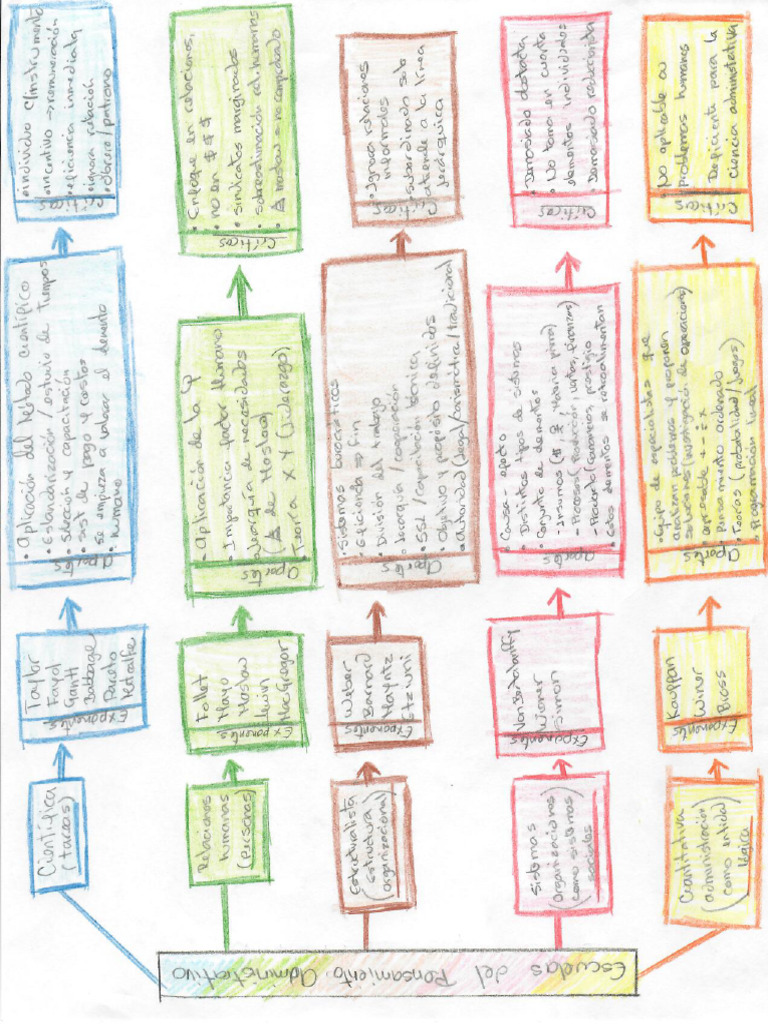 Escuelas del Pensamiento Administrativo
Científica
(tareas)
Exponentes
Taylor
Fayol
Gantt
Babbage
Pareto
Metcalfe
Aportes
• Aplicación del Método científico
• Estandarización / estudio de tiempos
• Selección y capacitación
• sist de pago y costos
• Se empieza a valorar el elemento
humano
Críticas
• individuo c/instrumento
• incentivo → remuneración
• eficiencia inmediata
• ignora relación
obrero/patrono
Relaciones
humanas
(personas)
Exponentes
Follet
Mayo
Maslow
Lewin
MacGregor
Aportes
• Aplicación de la Ψ
• Importancia factor humano
• Jerarquía de necesidades
(Δ de Maslow)
• Teoría X Y (liderazgo)
Críticas
• Enfoque en relaciones,
no en $$$
• Sindicatos marginados
• Sobreestimación rel. humanas
• Δ maslow = no comprobado
Estructuralista
(Estructura
organizacional)
Exponentes
Weber
Barnard
Mayntz
Etziuni
Aportes
• Sistemas burocráticos
• Eficiencia ⇒ fin
• División del trabajo
• Jerarquía / cooperación
• Sel/capacitación técnica
• Objetivo y propósito definidos
• autoridad (legal/carismática/tradicional)
Críticas
• Ignora relaciones
informales
• subordinado solo
atiende a la línea
jerárquica
Sistemas
(organizaciones
como sistemas
sociales)
Exponentes
Von Bertalanffy
Wiener
Simon
Aportes
• Causa-efecto
• Distintos tipos de sistemas
• Conjunto de elementos
- Procesos (Producción, vntas, finanzas)
• Estos elementos se retroalimentan
Críticas
• Demasiado abstracta
• No toma en cuenta
elementos individuales
• Demasiado reduccionista
Cuantitativa
(administración
como entidad
lógica)
Exponentes
Kauffan
Winer
Bross
Aportes
• Equipo de especialistas que
analizan problemas y proponen
soluciones (investigación de operaciones)
• expresable + - ÷ x
• Pensamiento ordenado
• Teorías (probabilidad/juegos)
• Programación lineal
Críticas
• No aplicable a
problemas humanos
• Deficiente para la
ciencia administrativa